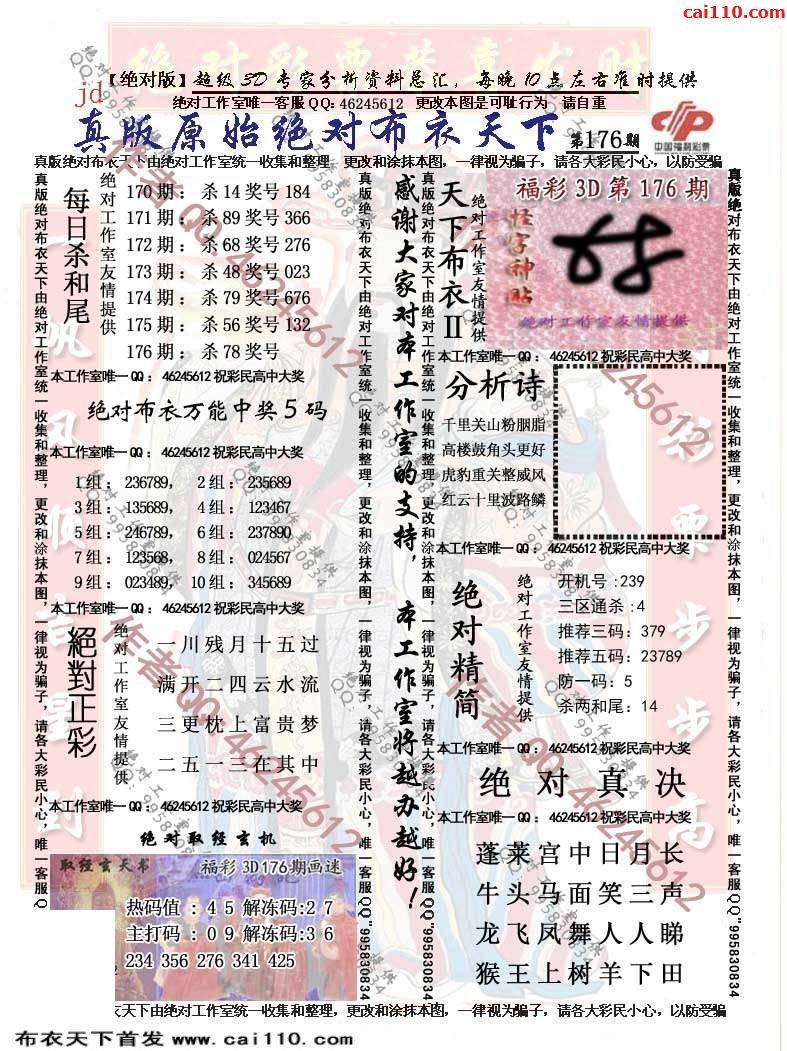 cai110.com
绝对彩票恭喜发财
【绝对版】超级3D专家分析资料总汇，每晚10点左右准时提供
jd
绝对工作室唯一客服QQ: 46245612 更改本图是可耻行为 请自重
真版原始绝对布衣天下 第176期
中国福利彩票
真版绝对布衣天下由绝对工作室统一收集和整理，更改和涂抹本图，一律视为骗子，请各大彩民小心，以防受骗
每日杀和尾
绝对工作室友情提供
170期：杀14奖号184
171期：杀89奖号366
172期：杀68奖号276
173期：杀48奖号023
174期：杀79奖号676
175期：杀56奖号132
176期：杀78奖号
本工作室唯一QQ：46245612祝彩民高中大奖
绝对布衣万能中奖5码
本工作室唯一QQ：46245612祝彩民高中大奖
1组：236789， 2组：235689
3组：135689， 4组：123467
5组：246789， 6组：237890
7组：123568， 8组：024567
9组：023489， 10组：345689
本工作室唯一QQ：46245612祝彩民高中大奖
絕對正彩
绝对工作室友情提供
一川残月十五过
满开二四云水流
三更枕上富贵梦
二五一三在其中
本工作室唯一QQ：46245612祝彩民高中大奖
绝对取经玄机
取经玄天书 福彩3D176期画迷
热码值：45解冻码:27
主打码：09解冻码:36
234 356 276 341 425
感谢大家对本工作室的支持，本工作室将越办越好！
天下布衣II
绝对工作室友情提供
福彩3D第176期
怪字神贴
绝对工作室友情提供
本工作室唯一QQ：46245612祝彩民高中大奖
分析诗
千里关山粉胭脂
高楼鼓角头更好
虎豹重关整威风
红云十里波路鳞
本工作室唯一QQ：46245612祝彩民高中大奖
绝对精简
绝对工作室友情提供
开机号:239
三区通杀:4
推荐三码:379
推荐五码:23789
防一码：5
杀两和尾：14
本工作室唯一QQ：46245612祝彩民高中大奖
绝对真决
本工作室唯一QQ：46245612祝彩民高中大奖
蓬莱宫中日月长
牛头马面笑三声
龙飞凤舞人人睇
猴王上树羊下田
真版绝对布衣天下由绝对工作室统一收集和整理，更改和涂抹本图，一律视为骗子，请各大彩民小心，唯一客服QQ"995830834
真版绝对布衣天下由绝对工作室统一收集和整理，更改和涂抹本图，一律视为骗子，请各大彩民小心，唯一客服QQ"995830834
真版绝对布衣天下由绝对工作室统一收集和整理，更改和涂抹本图，一律视为骗子，请各大彩民小心，唯一客服QQ"995830834
真版绝对布衣天下由绝对工作室统一收集和整理，更改和涂抹本图，一律视为骗子，请各大彩民小心，唯一客服QQ"995830834
作者QQ:46245612
作者QQ:46245612
作者QQ:46245612
衣天下由绝对工作室统一收集和整理，更改和涂抹本图，一律视为骗子，请各大彩民小心，以防受骗
布衣天下首发 www.cai110.com